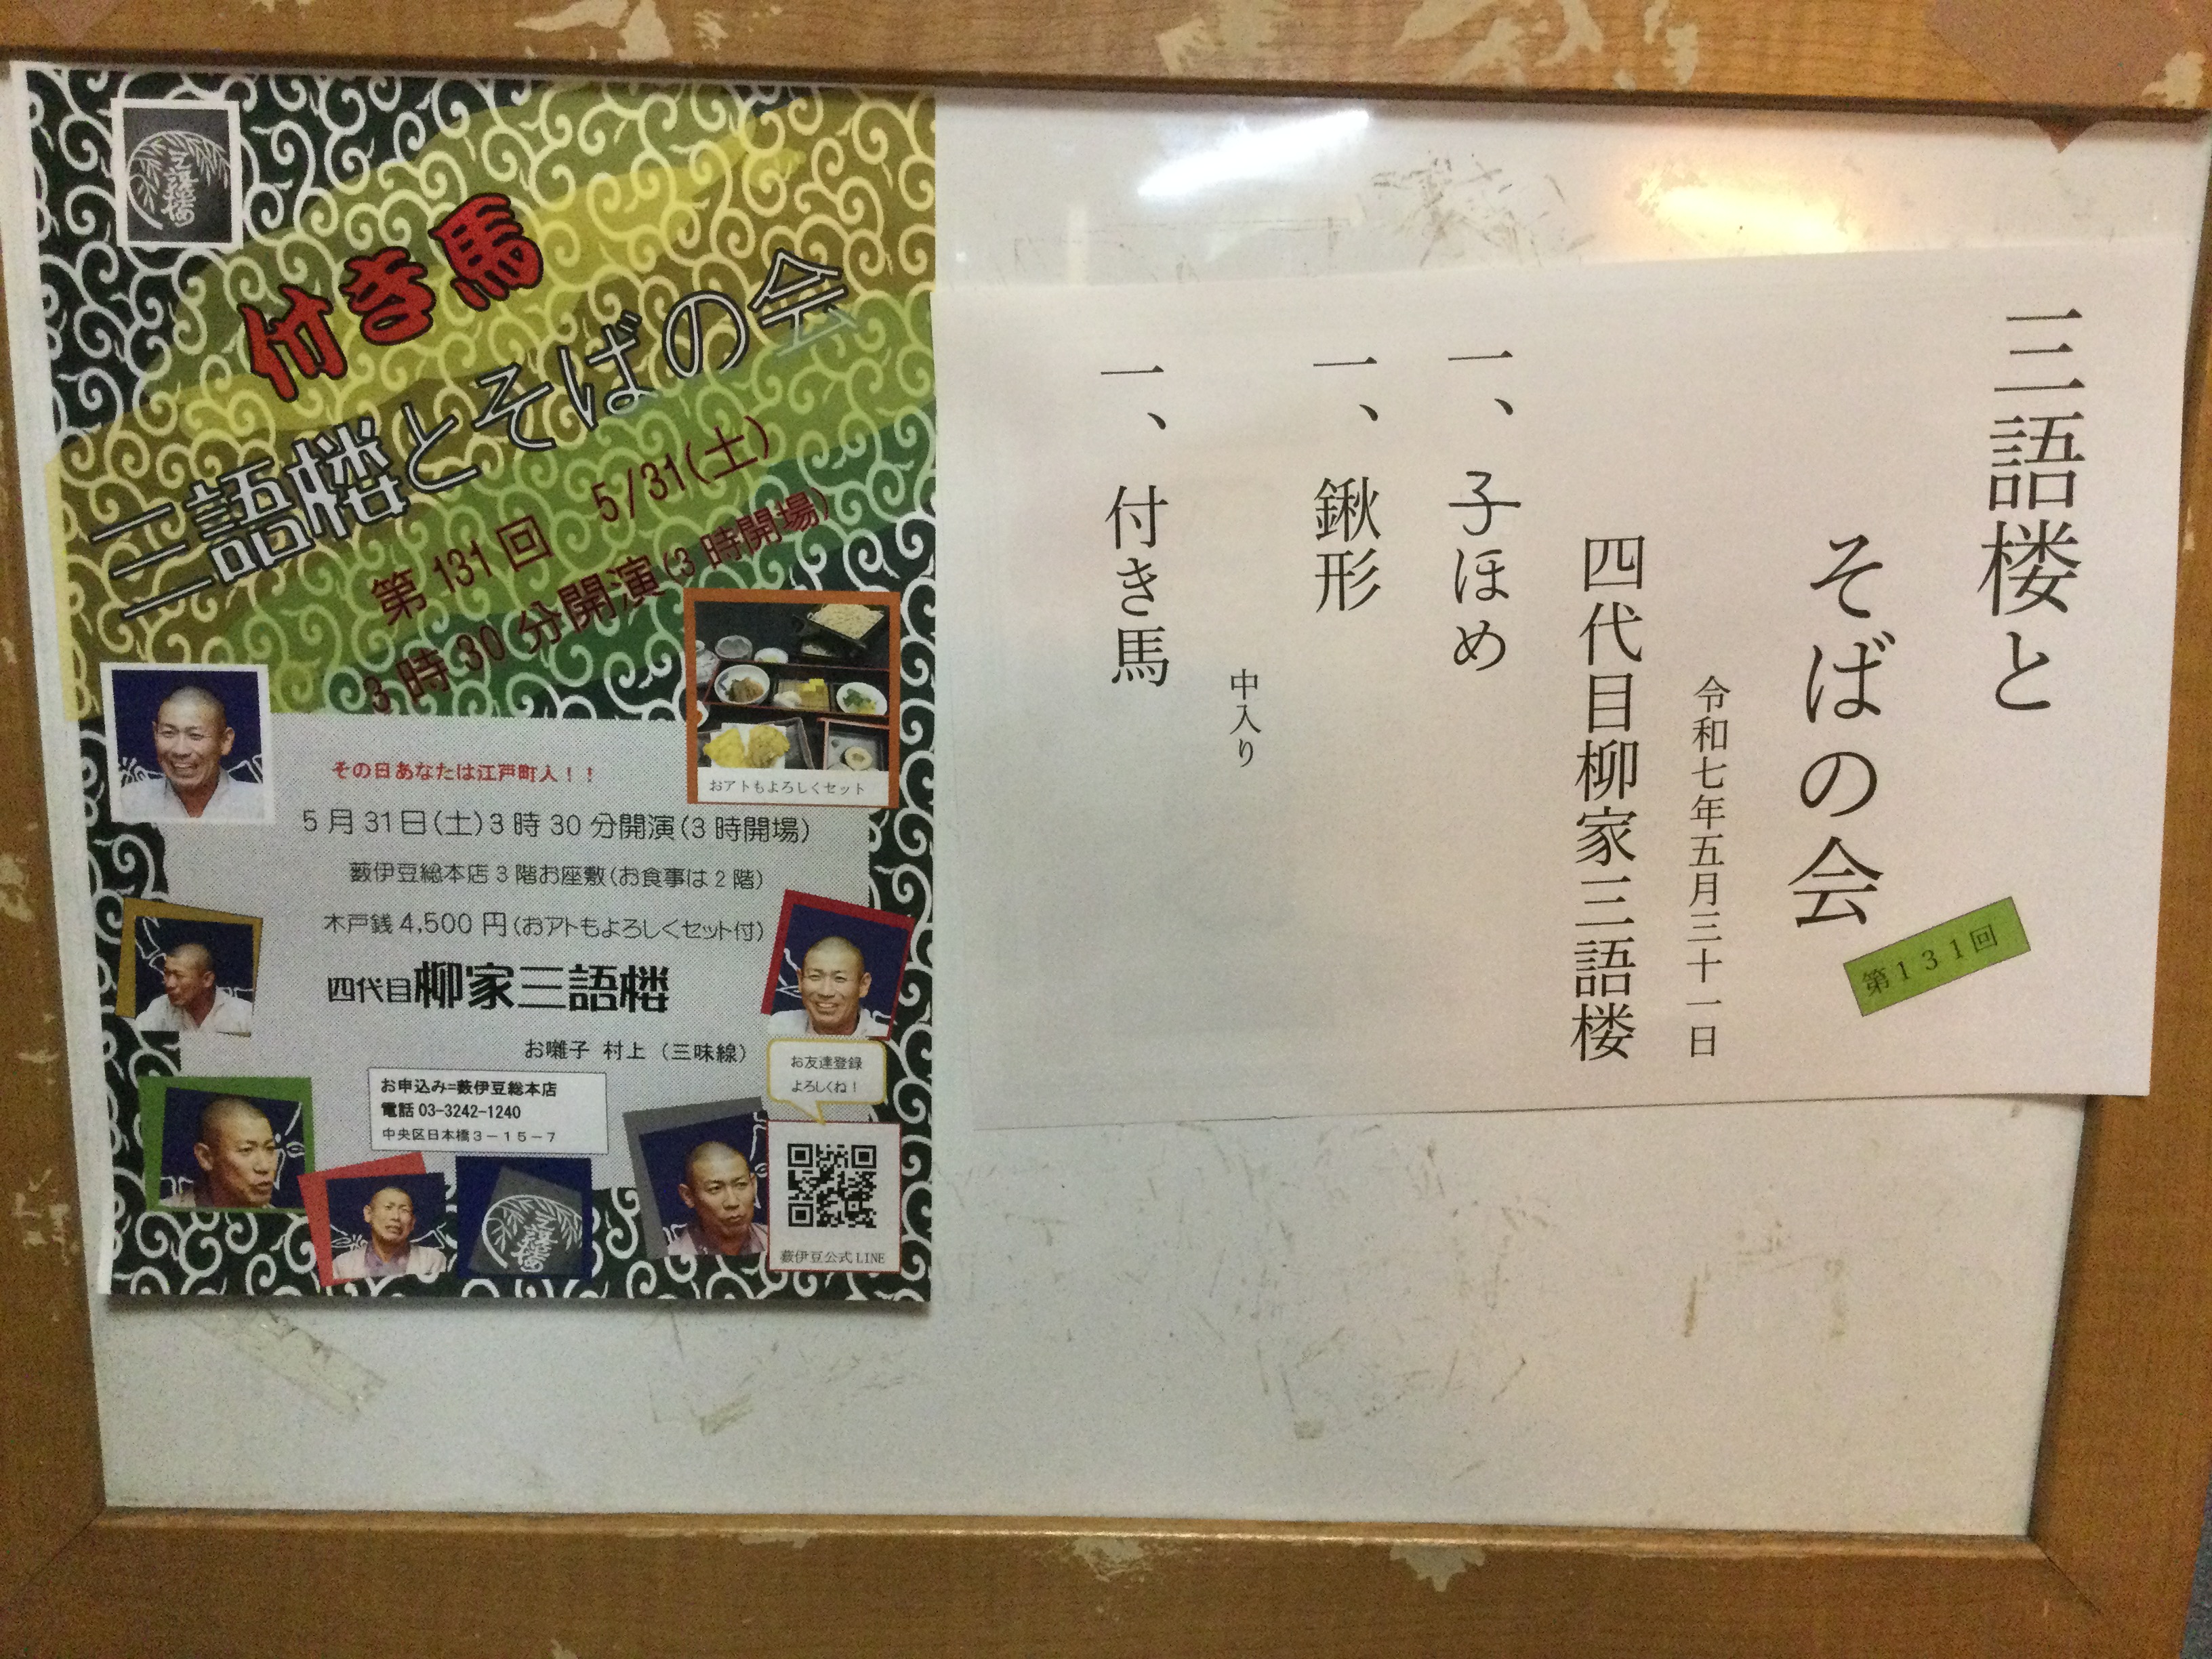 三語楼
付き馬
三語楼とそばの会
第131回 5/31(土)
3時30分開演(3時開場)
おアトもよろしくセット
その日あなたは江戸町人!!
5月31日(土)3時30分開演(3時開場)
藪伊豆総本店3階お座敷(お食事は2階)
木戸銭4,500円(おアトもよろしくセット付)
四代目柳家三語楼
お囃子 村上 (三味線)
お友達登録
よろしくね!
お申込み=藪伊豆総本店
電話 03-3242-1240
中央区日本橋3-15-7
三語楼
藪伊豆公式LINE
三語楼と
そばの会
第131回
令和七年五月三十一日
四代目柳家三語楼
一、子ほめ
一、鍬形
中入り
一、付き馬